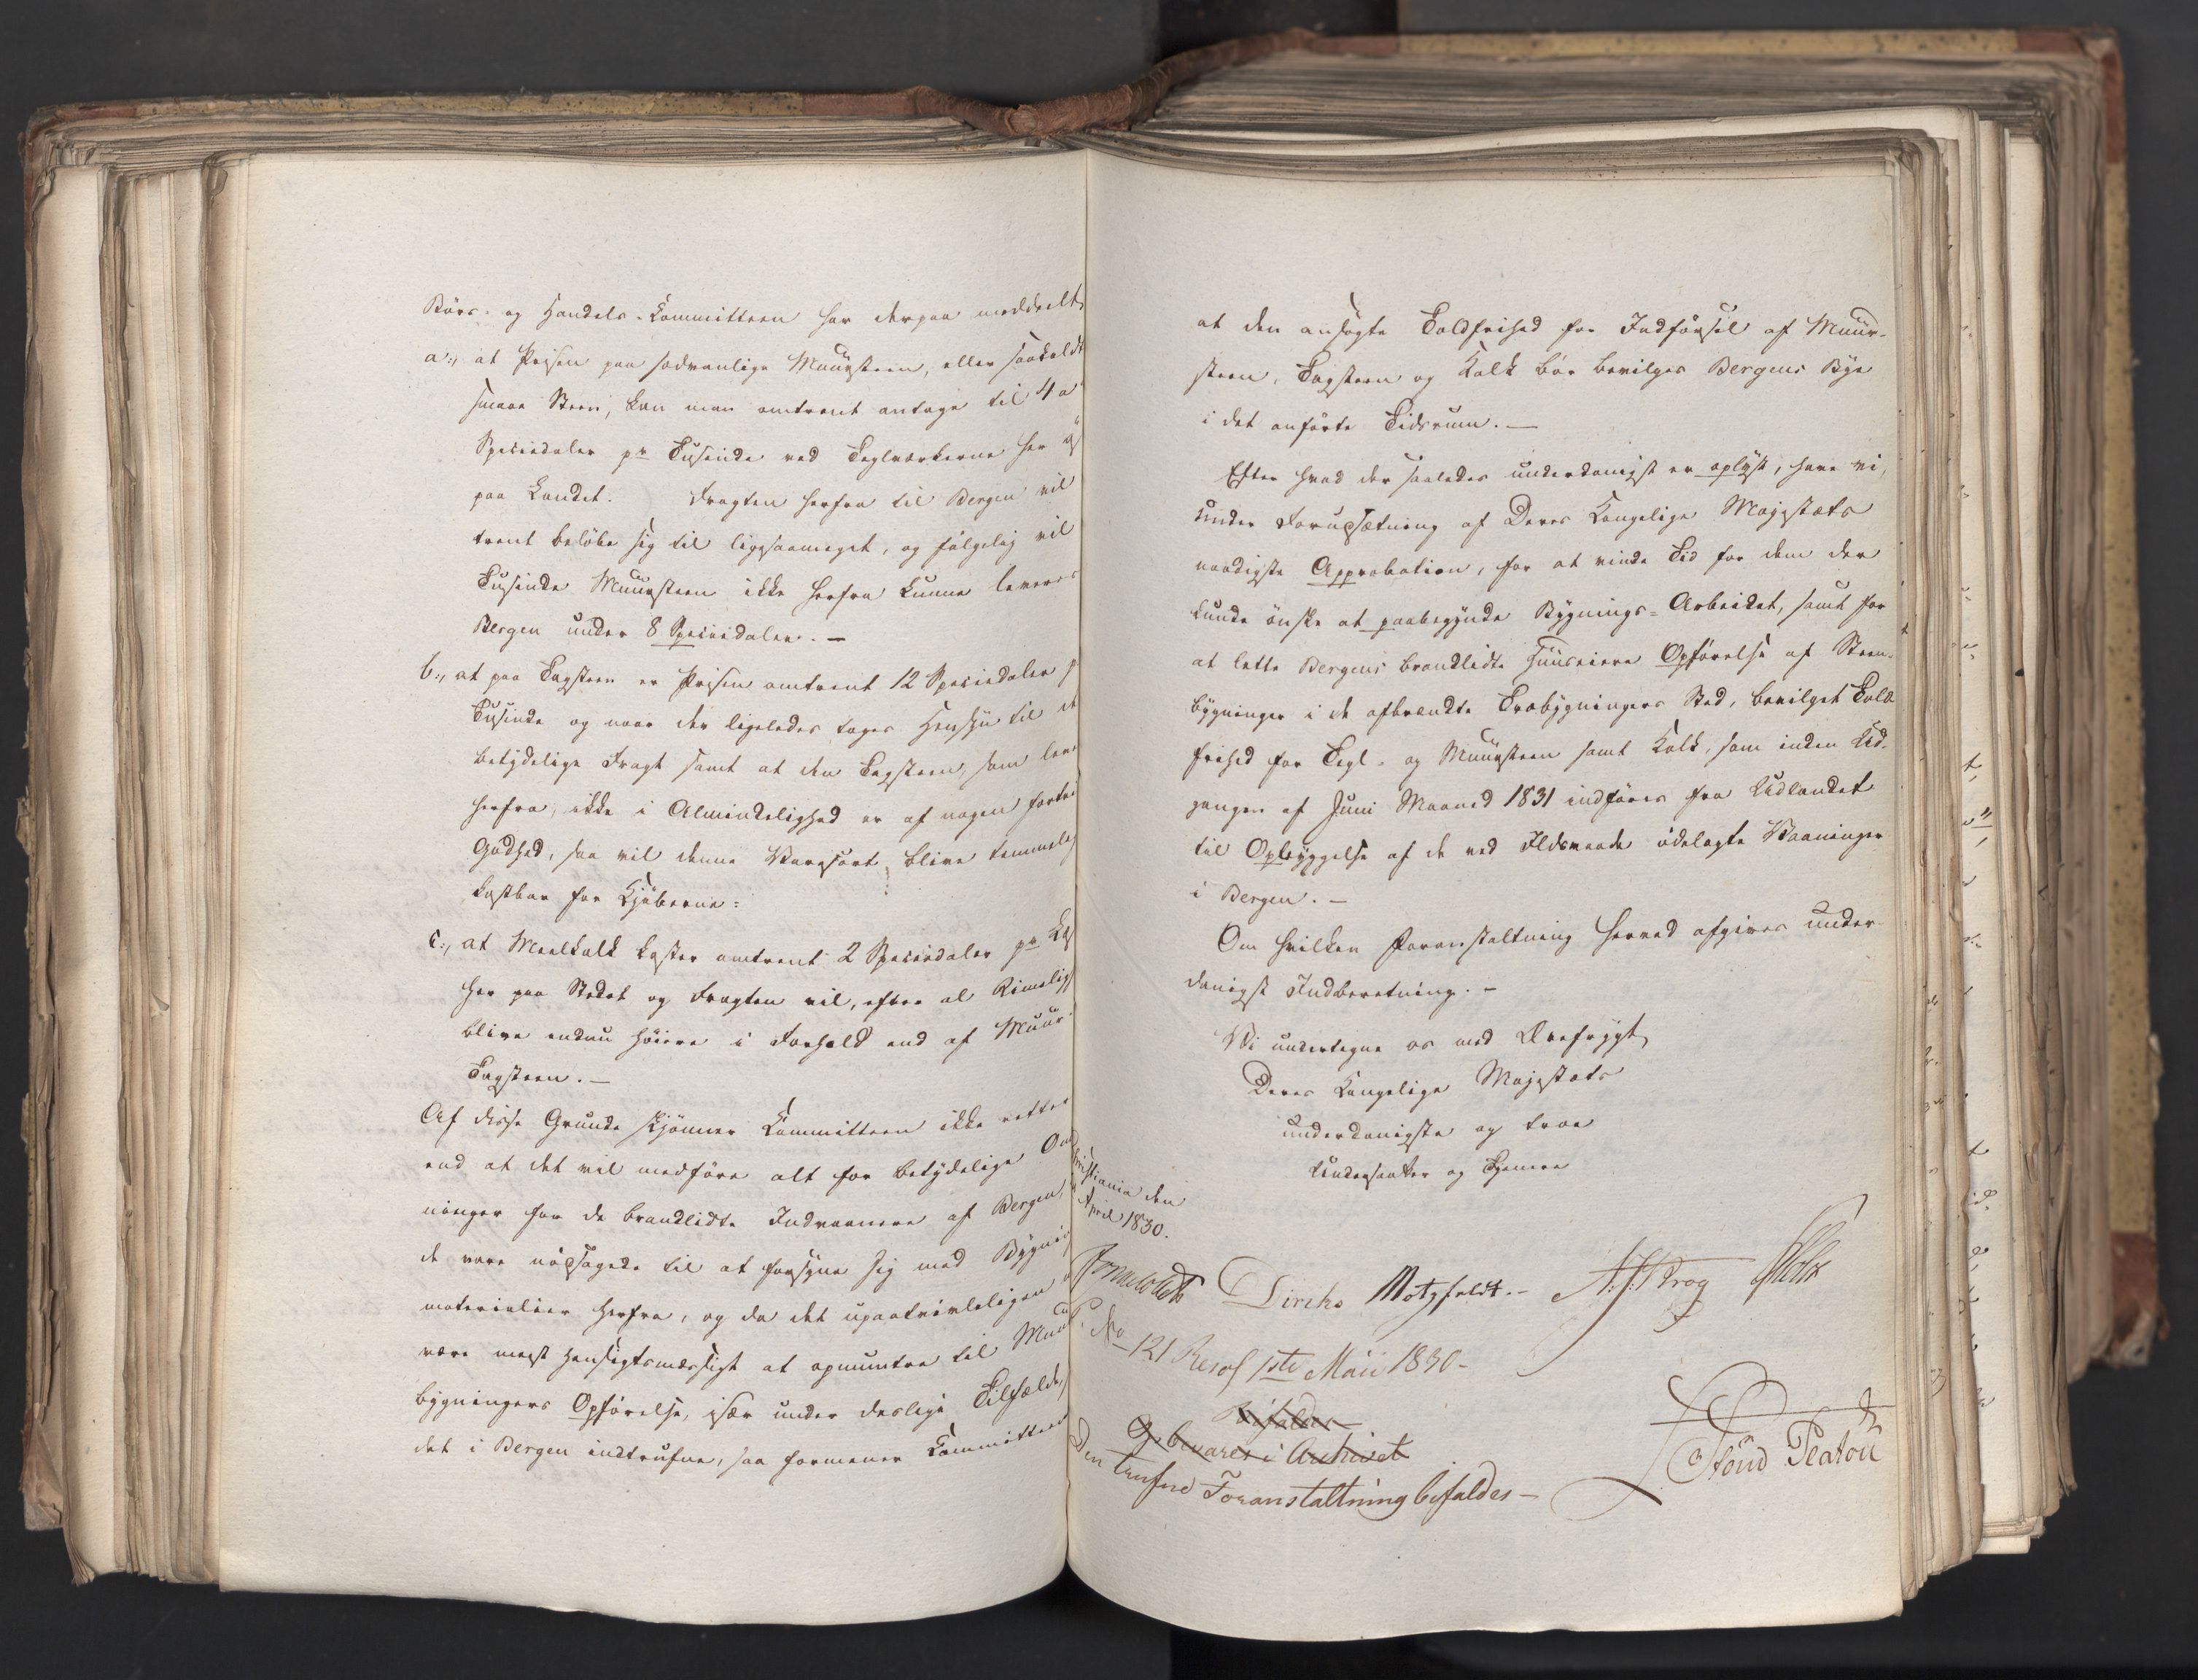 Börs- og Handels-Committeen har derpaa meddeelt,
a:, at Prisen paa sædvanlige Muursteen, eller saakaldt
smaae Steen, kan man omtrent antage til 4 a
Speciedaler pr Tusinde ved Teglværkerne her
paa Landet. Fragten herfra til Bergen vil
trent belöbe sig til ligesaameget, og fölgelig vil
Tusinde Muursteen ikke herfra kunne leveres
Bergen under 8 Speciedaler. —
b:, at paa Tagsteen er Prisen omtrent 12 Speciedaler p
Tusinde og naar der ligeledes tages Hensyn til d
betydelige Fragt samt at den Tagsteen, som leve
herfra, ikke i Almindelighed er af nogen fortri
Godhed, saa vil denne Varesort blive temmelig
kostbar for Kjöberne:
c:, at Meelkalk koster omtrent 2 Speciedaler pr
her paa Stedet og Fragten vil, efter al Rimelig
blive endnu höiere i Forhold end af Muur-
Tagsteen. —
Af disse Grunde skjönner Committeen ikke rettere
end at det vil medföre alt for betydelige Om
ninger for de brandlidte Indvaanere af Bergen,
de vare nödsagede til at forsyne sig med Bygnin
materialier herfra, og da det upaatvivleligen
være meest hensigtsmæssigt at opmuntre til Muur
bygningers Opförelse, især under deslige Tilfælde,
det i Bergen indtrufne, saa formener Committeen
at den ansögte Toldfrihed for Indförsel af Muur-
steen, Tagsteen og Kalk bör bevilges Bergens Bye
i det anförte Tidsrum. —
Efter hvad der saaledes underdanigst er oplyst, have vi,
under Forudsætning af Deres Kongelige Majestæts
naadigste Approbation, for at vinde Tid for dem der
kunde önske at paabegynde Bygnings-Arbeidet, samt for
at lette Bergens brandlidte Huuseiere Opförelse af Steen-
bygninger i de afbrændte Træbygningers Sted, bevilget Told
frihed for Tegl- og Muursteen samt Kalk, som inden Ud-
gangen af Juni Maaned 1831 indföres fra Udlandet
til Opbyggelse af de ved Ildsvaade ödelagte Vaaninger
i Bergen. —
Om hvilken Foranstaltning herved afgives under-
danigst Indberetning. —
Vi undertegne os med Ærefrygt,
Deres Kongelige Majestæts
underdanigste og troe
Undersaatter og Tjenere
Christiania den
April 1830.
Diriks Motzfeldt. - Krog Holst
No 121 Resol 1ste Maii 1830 -
Bifaldes
Og bevares i Archivet
Den trufne Foranstaltning bifaldes —
Stoud Platou